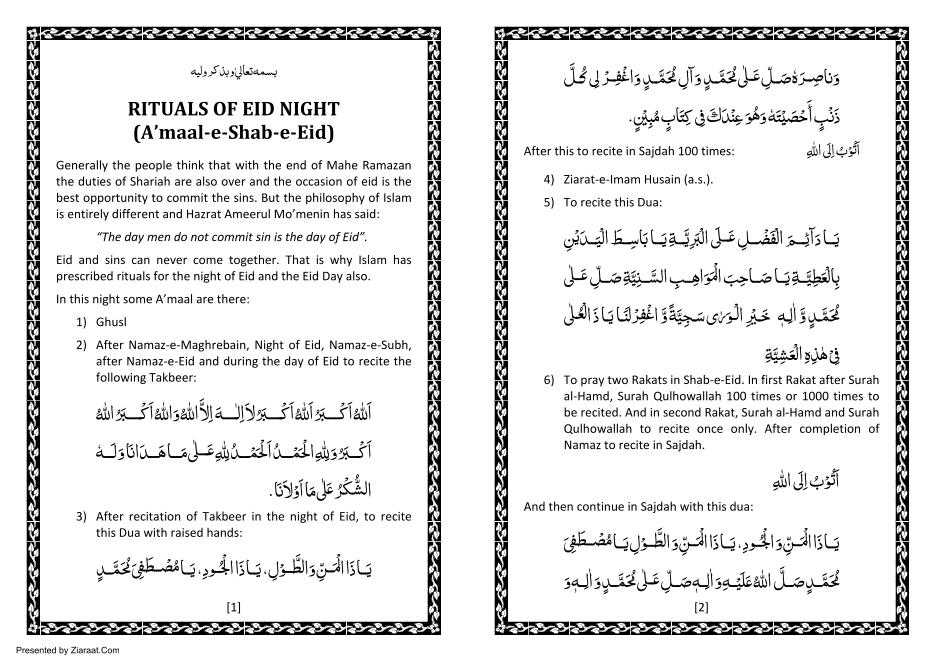 بسمه تعالىٰ وبذكر وليه
RITUALS OF EID NIGHT
(A’maal-e-Shab-e-Eid)
Generally the people think that with the end of Mahe Ramazan
the duties of Shariah are also over and the occasion of eid is the
best opportunity to commit the sins. But the philosophy of Islam
is entirely different and Hazrat Ameerul Mo’menin has said:
“The day men do not commit sin is the day of Eid”.
Eid and sins can never come together. That is why Islam has
prescribed rituals for the night of Eid and the Eid Day also.
In this night some A’maal are there:
1) Ghusl
2) After Namaz-e-Maghrebain, Night of Eid, Namaz-e-Subh,
after Namaz-e-Eid and during the day of Eid to recite the
following Takbeer:
اَللهُ اَكْبَرُ اَللهُ اَكْبَرُ لَا اِلٰهَ اِلَّا اللهُ وَاللهُ اَكْبَرُ اَللهُ
اَكْبَرُ وَلِلّٰهِ الْحَمْدُ اَلْحَمْدُ لِلّٰهِ عَلٰى مَا هَدَانَا وَلَهُ
الشُّكْرُ عَلٰى مَا اَوْلَانَا.
3) After recitation of Takbeer in the night of Eid, to recite
this Dua with raised hands:
يَا ذَا الْمَنِّ وَالطَّوْلِ، يَا ذَا الْجُودِ، يَا مُصْطَفِيَ مُحَمَّدٍ
[1]
وَنَاصِرَهُ صَلِّ عَلٰى مُحَمَّدٍ وَآلِ مُحَمَّدٍ وَاغْفِرْ لِي كُلَّ
ذَنْبٍ أَحْصَيْتَهُ وَهُوَ عِنْدَكَ فِي كِتَابٍ مُبِيْنٍ.
After this to recite in Sajdah 100 times: اَتُوْبُ اِلَى اللهِ
4) Ziarat-e-Imam Husain (a.s.).
5) To recite this Dua:
يَا دَآئِمَ الْفَضْلِ عَلَى الْبَرِيَّةِ يَا بَاسِطَ الْيَدَيْنِ
بِالْعَطِيَّةِ يَا صَاحِبَ الْمَوَاهِبِ السَّنِيَّةِ صَلِّ عَلٰى
مُحَمَّدٍ وَّ اٰلِهٖ خَيْرِ الْوَرٰى سَجِيَّةً وَّ اغْفِرْ لَنَا يَا ذَا الْعُلٰى
فِيْ هٰذِهِ الْعَشِيَّةِ
6) To pray two Rakats in Shab-e-Eid. In first Rakat after Surah
al-Hamd, Surah Qulhowallah 100 times or 1000 times to
be recited. And in second Rakat, Surah al-Hamd and Surah
Qulhowallah to recite once only. After completion of
Namaz to recite in Sajdah.
اَتُوْبُ اِلَى اللهِ
And then continue in Sajdah with this dua:
يَا ذَا الْمَنِّ وَالْجُودِ، يَا ذَا الْمَنِّ وَالطَّوْلِ يَا مُصْطَفِيَ
مُحَمَّدٍ صَلَّ اللهُ عَلَيْهِ وَاٰلِهٖ صَلِّ عَلٰى مُحَمَّدٍ وَاٰلِهٖ وَ
[2]
Presented by Ziaraat.Com